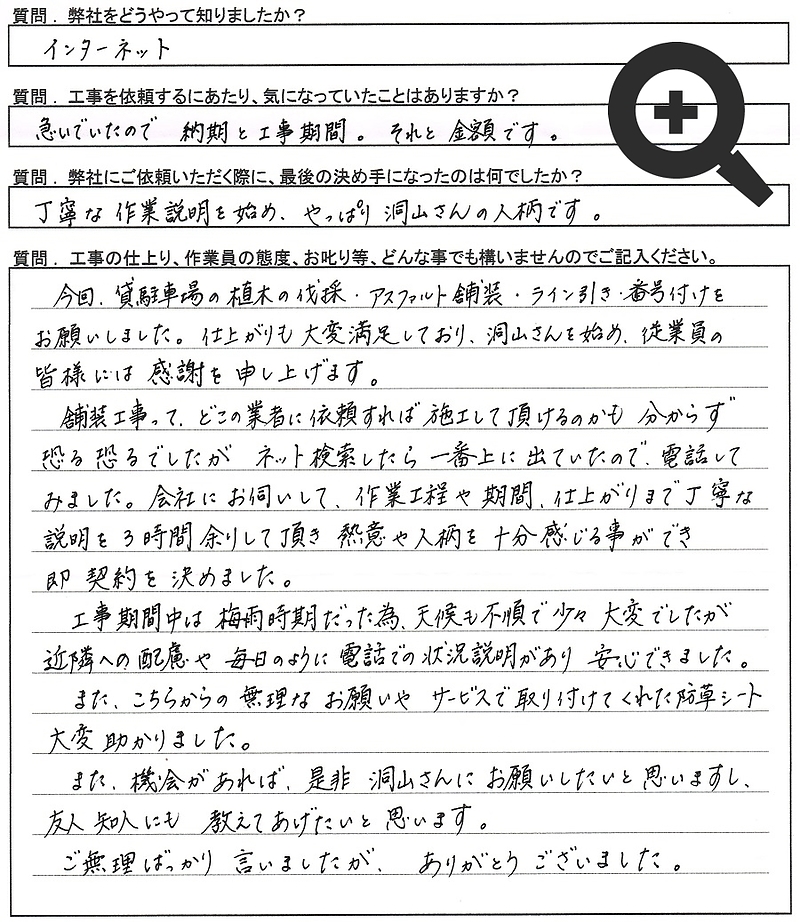 質問．弊社をどうやって知りましたか？
インターネット
質問．工事を依頼するにあたり、気になっていたことはありますか？
急いでいたので 納期と工事期間。それと金額です。
質問．弊社にご依頼いただく際に、最後の決め手になったのは何でしたか？
丁寧な作業説明を始め、やっぱり洞山さんの人柄です。
質問．工事の仕上り、作業員の態度、お叱り等、どんな事でも構いませんのでご記入ください。
今回、貸駐車場の植木の伐採・アスファルト舗装・ライン引き・番号付けを
お願いしました。仕上がりも大変満足しており、洞山さんを始め、従業員の
皆様には感謝を申し上げます。
舗装工事って、どこの業者に依頼すれば施工して頂けるのかも分からず
恐る恐るでしたが ネット検索したら一番上に出ていたので、電話して
みました。会社にお伺いして、作業工程や期間、仕上がりまで丁寧な
説明を3時間余りして頂き 熱意や人柄を十分感じる事ができ
即契約を決めました。
工事期間中は梅雨時期だった為、天候も不順で少々大変でしたが
近隣への配慮や毎日のように電話での状況説明があり 安心できました。
また、こちらからの無理なお願いや サービスで取り付けてくれた防草シート
大変助かりました。
また、機会があれば、是非 洞山さんにお願いしたいと思いますし、
友人知人にも 教えてあげたいと思います。
ご無理ばっかり言いましたが、ありがとうございました。